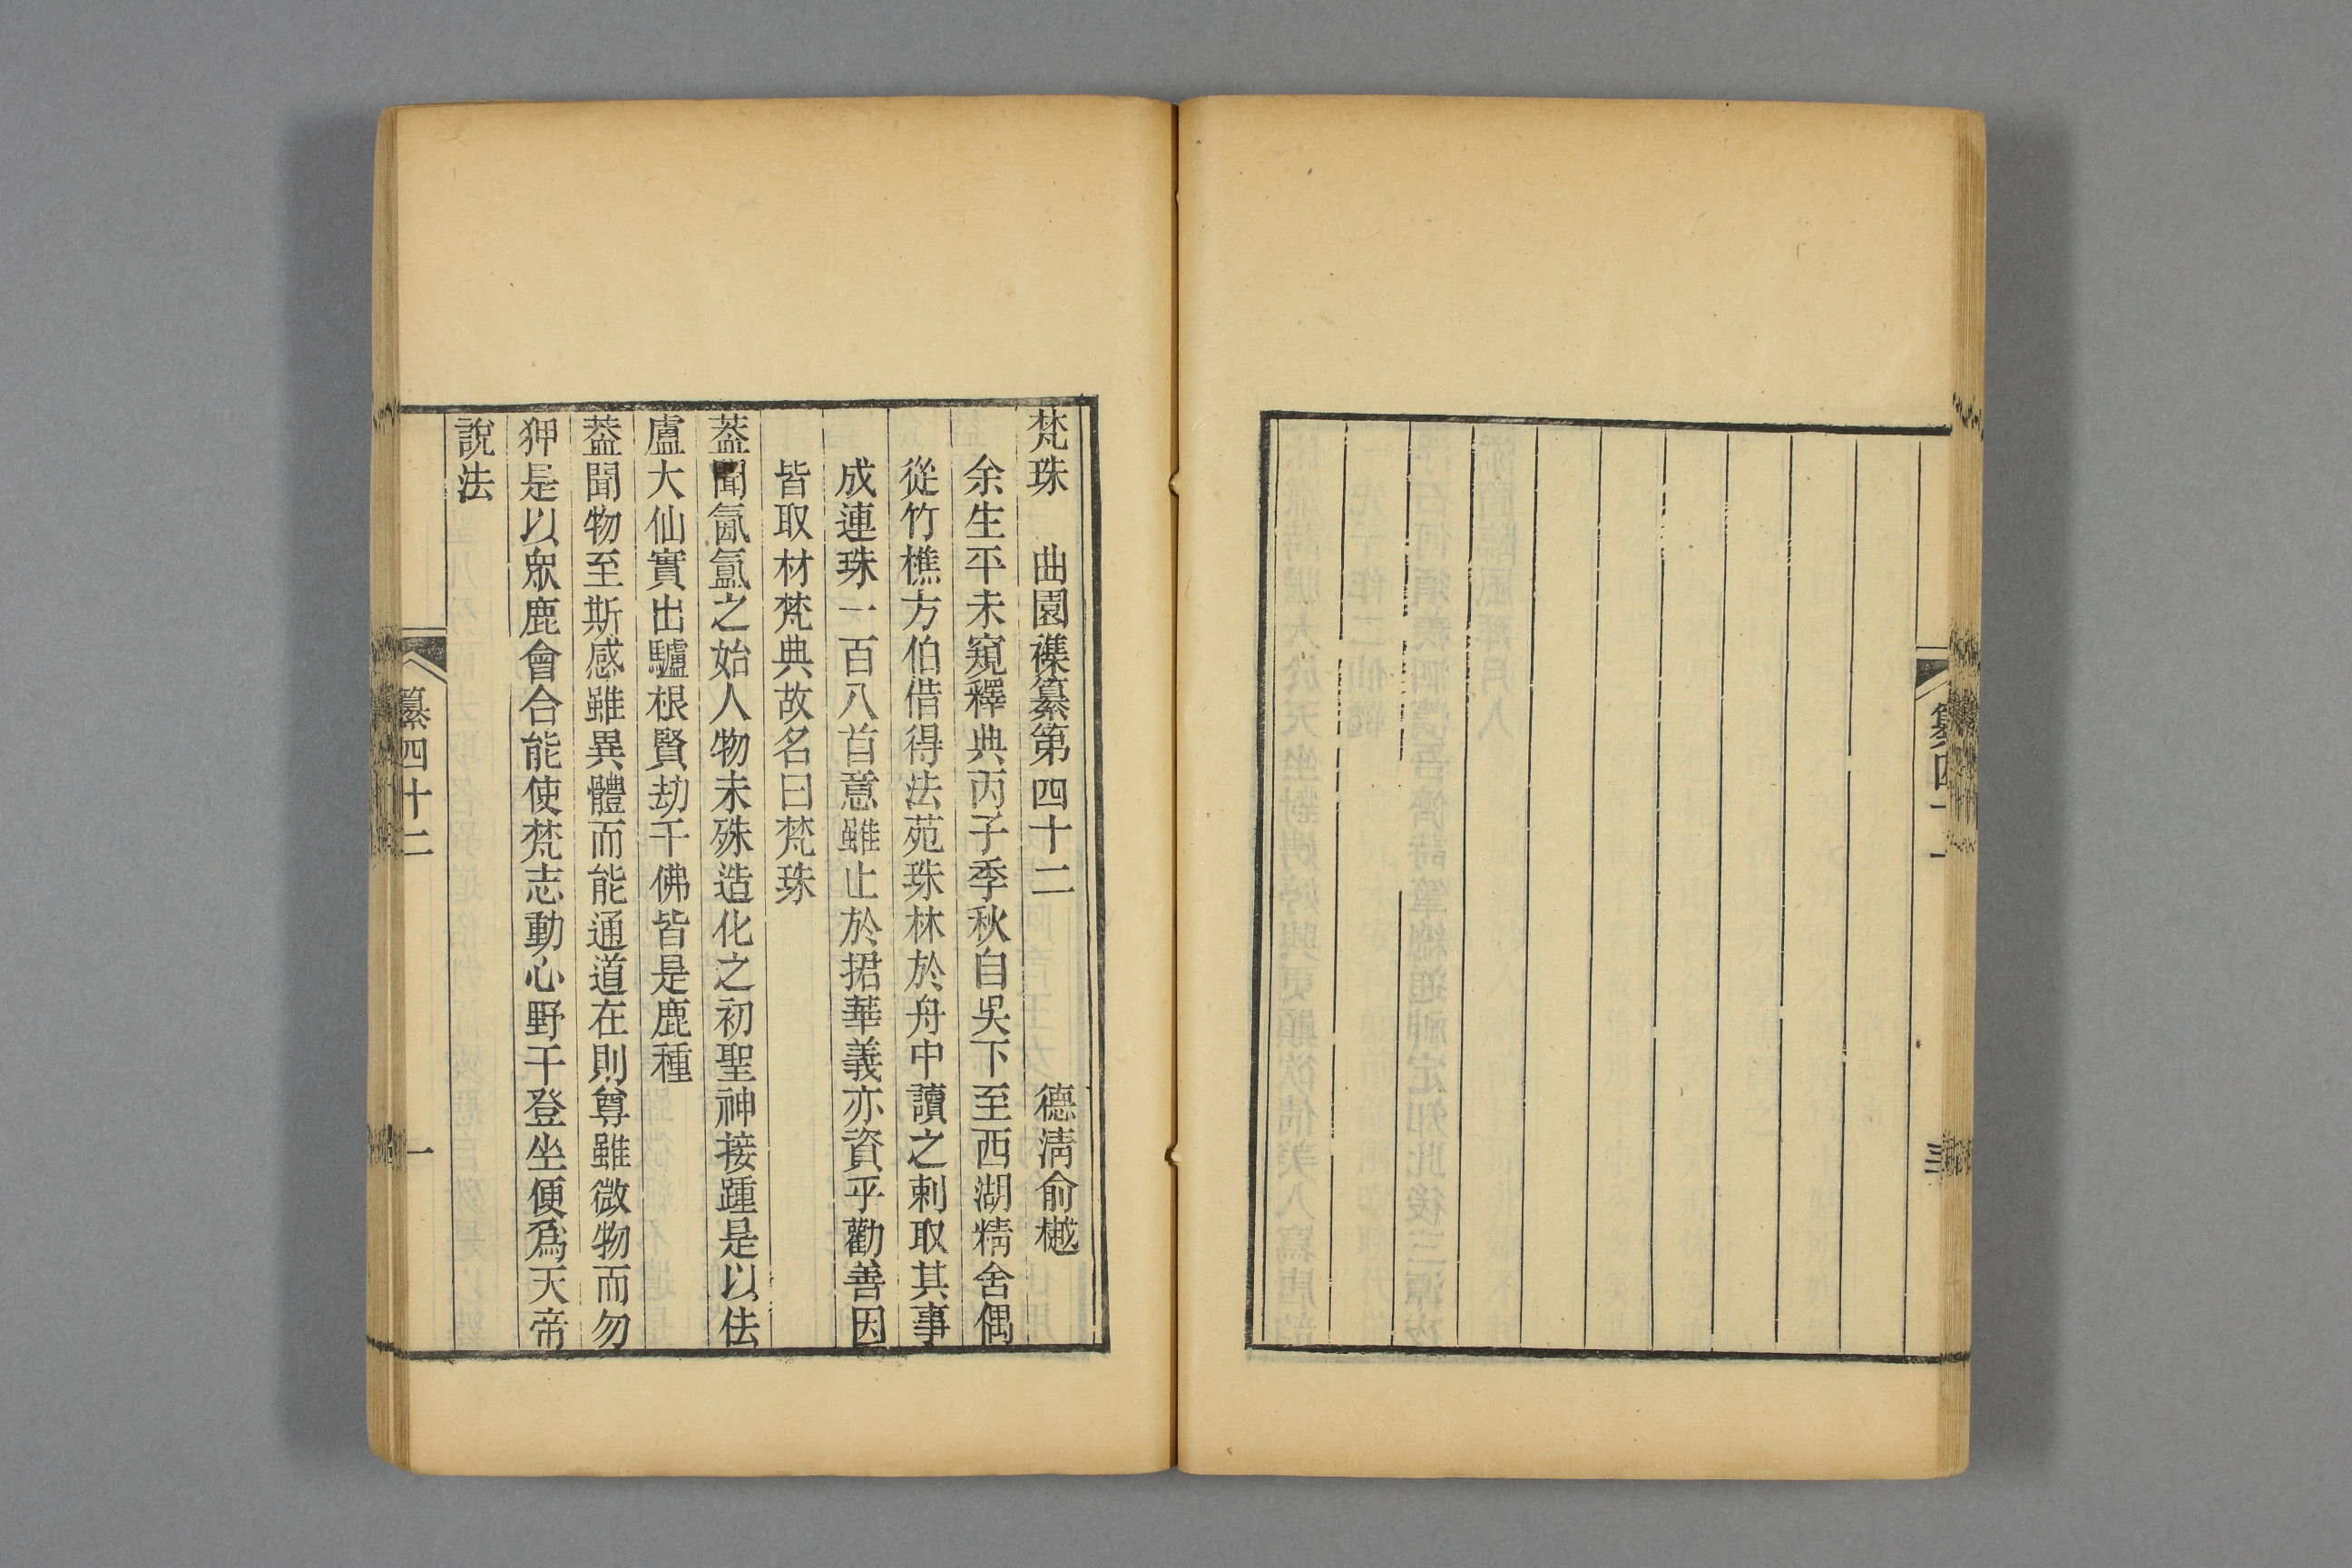 梵珠 曲園襍纂第四十二 德淸俞樾
余生平未窺釋典丙子季秋自吳下至西湖精舍偶
從竹樵方伯借得法苑珠林於舟中讀之刺取其事
成連珠一百八首意雖止於捃華義亦資乎勸善因
皆取材梵典故名曰梵珠
葢聞氤氳之始人物未殊造化之初聖神接踵是以佉
盧大仙實出驢根賢劫千佛皆是鹿種
葢聞物至斯感雖異體而能通道在則尊雖微物而勿
狎是以衆鹿會合能使梵志動心野干登坐便爲天帝
說法
纂四十二
一